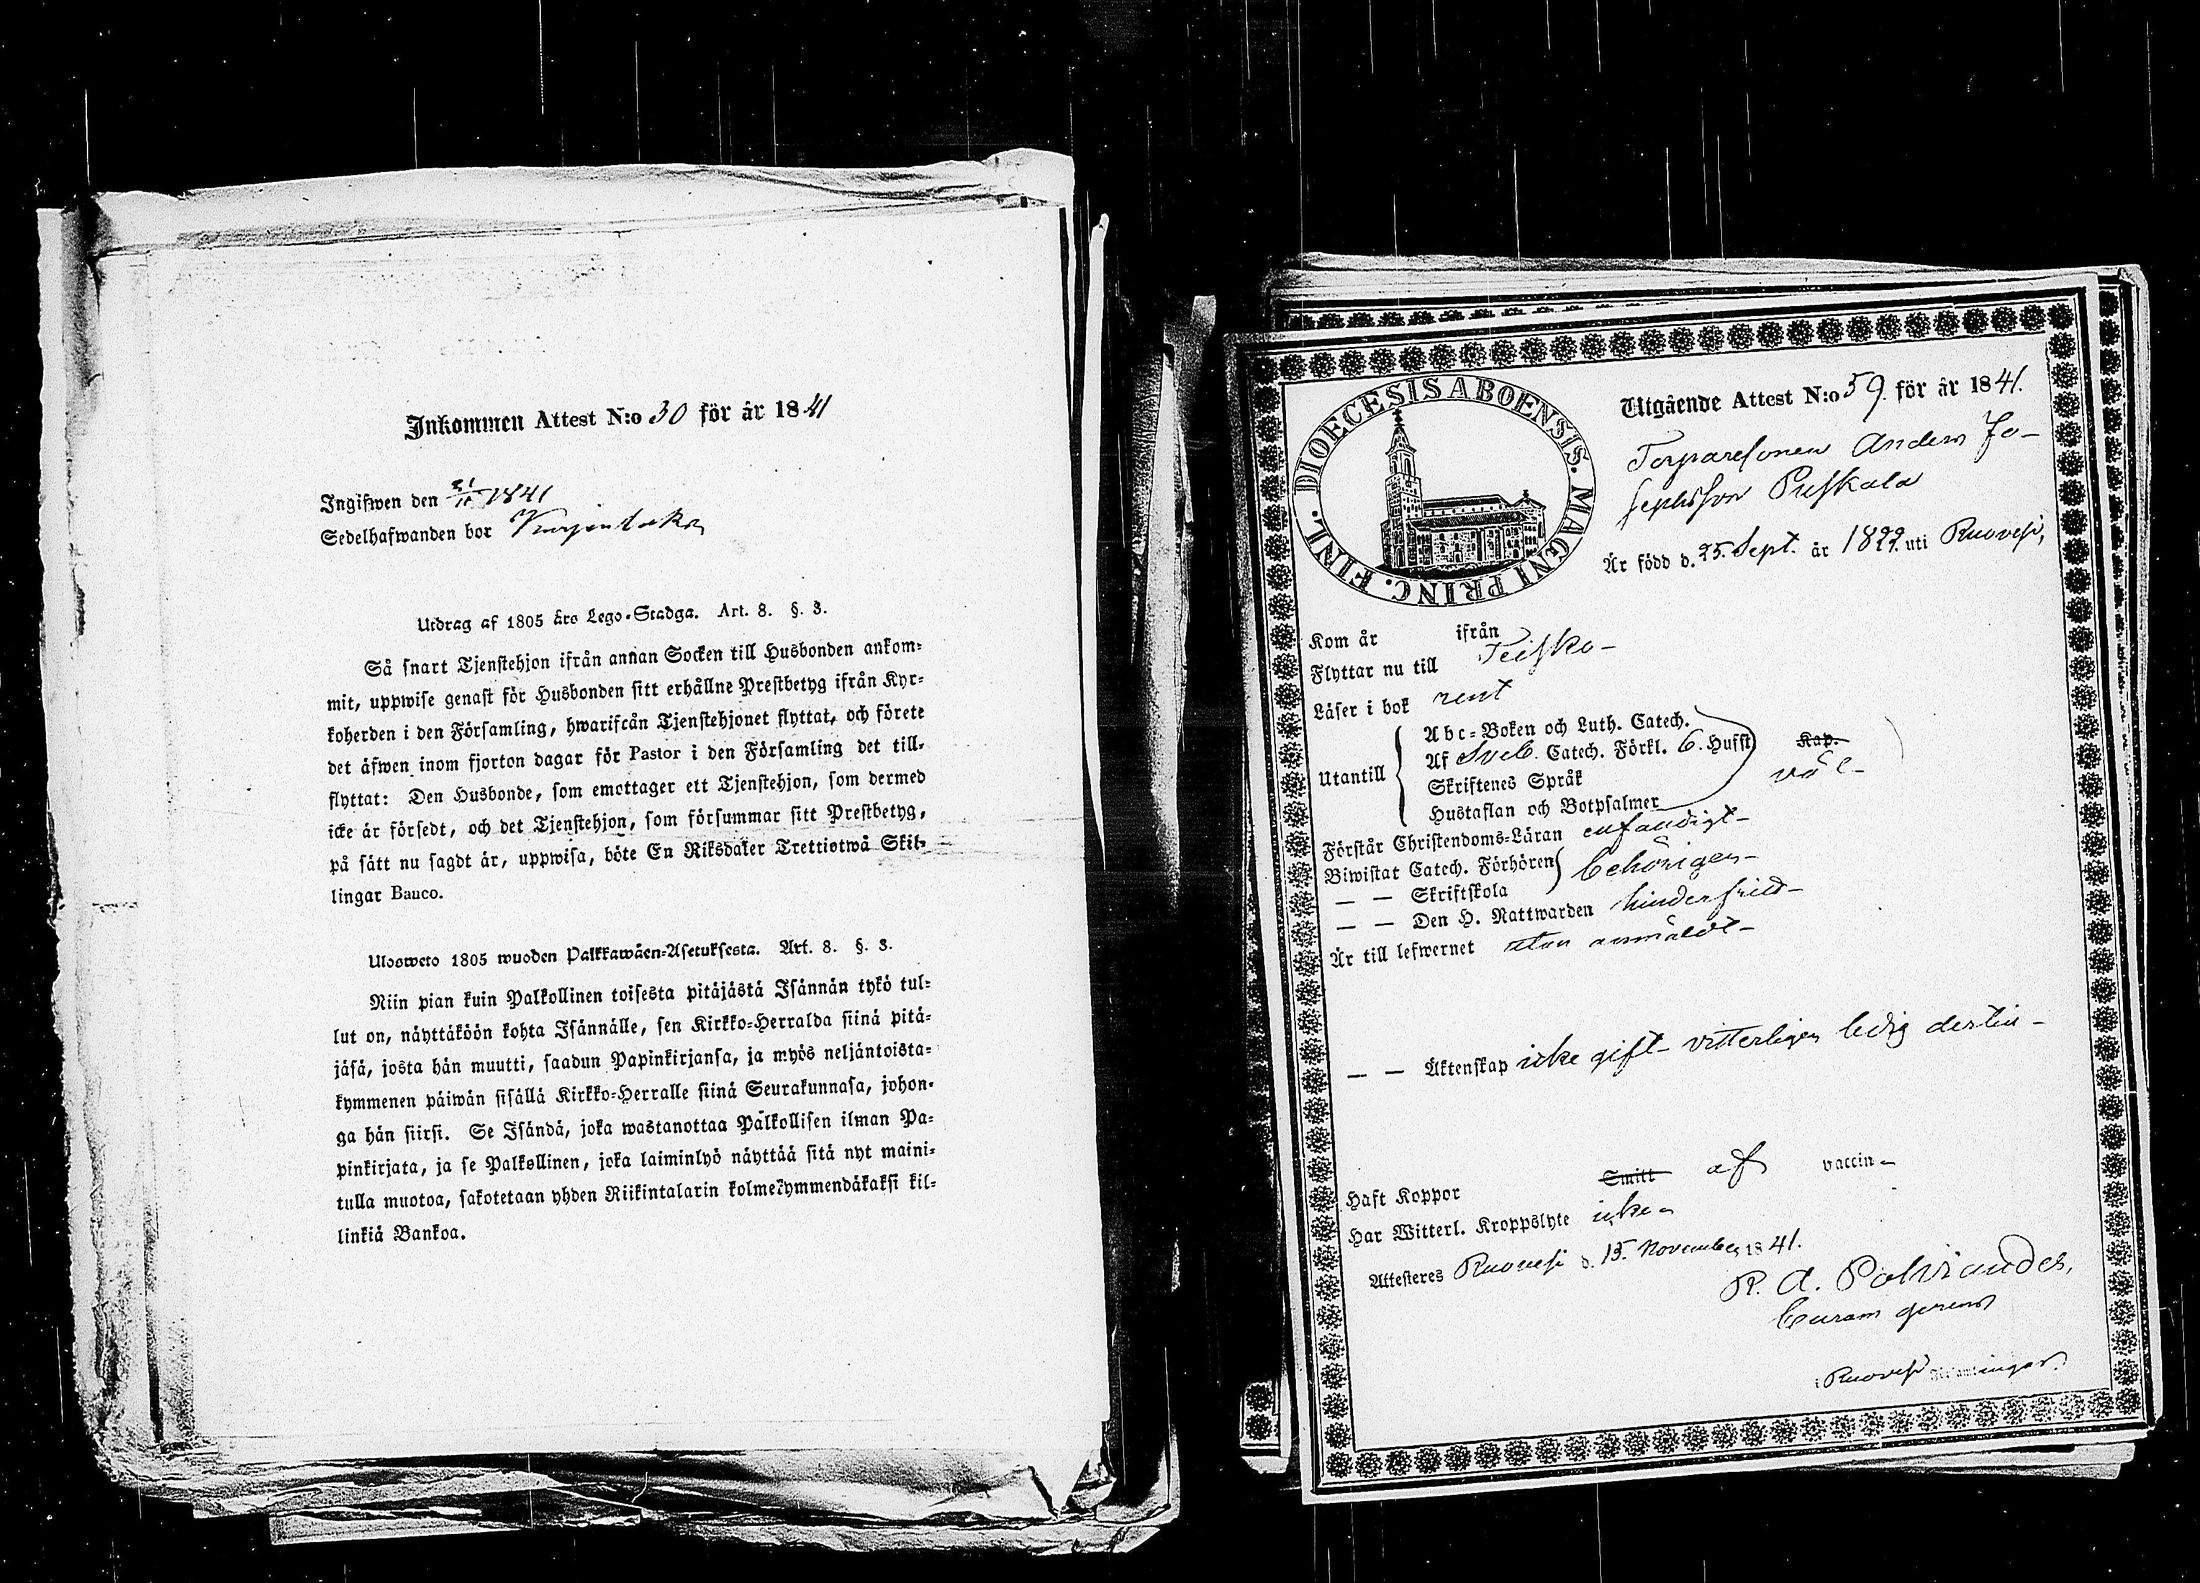 Inkommen Attest N:o 30 för år 1841
Ingifwen den 1841
Sedelhafwanden bor
Utdrag af 1805 års Lego-Stadga. Art. 8. §. 3.
Så snart Tjenstehjon ifrån annan Socken till Husbonden ankom-
mit, uppwise genast för Husbonden sitt erhållne Prestbetyg ifrån Kyr-
koherden i den Församling, hwarifrån Tjenstehjonet flyttat, och förete
det äfwen inom fjorton dagar för Pastor i den Församling det till-
flyttat: Den Husbonde, som emottager ett Tjenstehjon, som dermed
icke är försedt, och det Tjenstehjon, som försummar sitt Prestbetyg,
på sätt nu sagdt är, uppwisa, böte En Riksdaler Trettiotwå Skil-
lingar Banco.
Ulosweto 1805 wuoden Palkkawäen-Asetuksesta. Art. 8. §. 3.
Niin pian kuin Palkollinen toisesta pitäjästä Isännän tykö tul-
lut on, näyttäköön kohta Isännälle, sen Kirkko-Herralda siinä pitä-
jäsä, josta hän muutti, saadun Papinkirjansa, ja myös neljäntoista-
kymmenen päiwän sisällä Kirkko-Herralle siinä Seurakunnasa, johon-
ga hän siirsi. Se Isändä, joka wastanottaa Palkollisen ilman Pa-
pinkirjata, ja se Palkollinen, joka laiminlyö näyttää sitä nyt maini-
tulla muotoa, sakotetaan yhden Riikintalarin kolmekymmendäkaksi kil-
linkiä Bankoa.
DIOECESIS ABOENSIS. MAGNI PRINC. FINL.
Utgående Attest N:o 59. för år 1841.
Torparesonen Anders Jo-
sephsson Puskala
Är född d. 25. Sept. år 1822. uti Ruovesi,
Kom år ifrån
Flyttar nu till Teisko-
Läser i bok rent
Utantill
Abc-Boken och Luth. Catech.
Af Sveb. Catech. Förkl. 6. Hufst Kap.
Skriftenes Språk väl-
Hustaflan och Botpsalmer
Förstår Christendoms-Läran enfaudigt-
Biwistat Catech. Förhören behörigen-
— — Skriftskola
— — Den H. Nattwarden hinderfried-
Är till lefwernet utan anmäldt-
— — Äktenskap icke gift- vitterligen ledig dertill-
Haft Koppor Smitt af vaccin-
Har Witterl. Kroppslyte icke-
Attesteres Ruovesi d. 15. November 1841.
R. A. Polviander,
Curam gerens
i Ruovesi Församlingar.